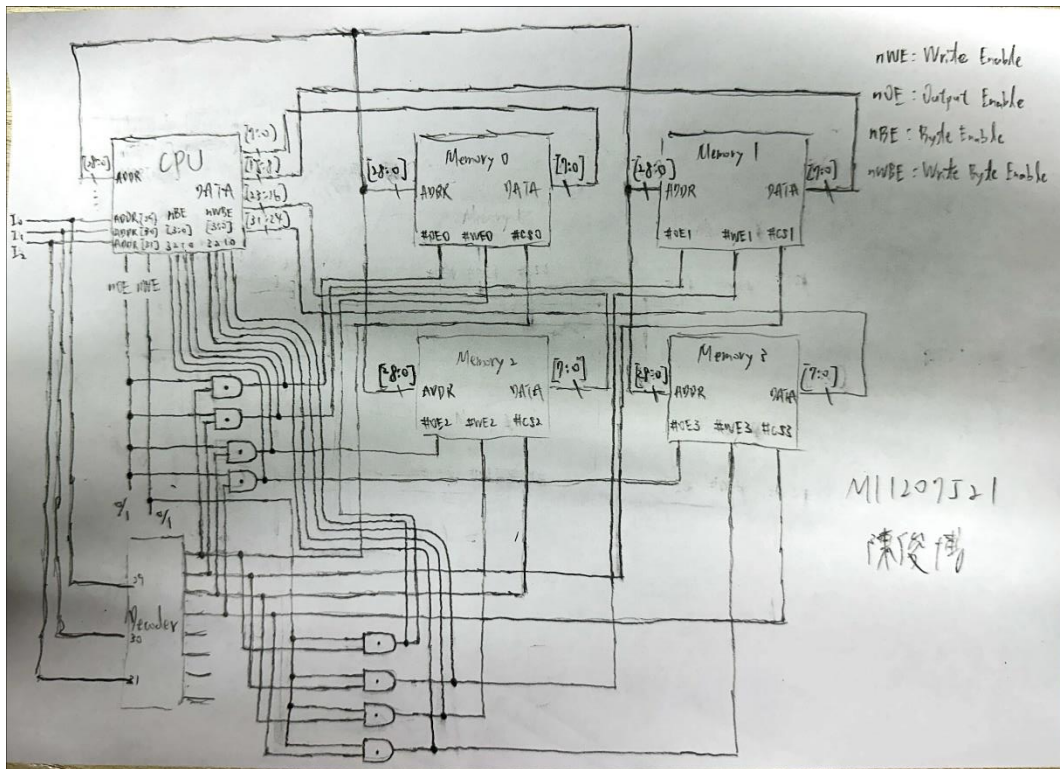 nWE: Write Enable
nOE: Output Enable
nBE: Byte Enable
nWBE: Write Byte Enable
CPU
[28:0]
ADDR
[7:0]
[15:8]
[23:16]
[31:24]
DATA
ADDR[29]
ADDR[30]
ADDR[31]
nBE
[3:0]
3 2 1 0
nWBE
[3:0]
3 2 1 0
I0
I1
I2
nOE nWE
Memory 0
[28:0]
[7:0]
ADDR DATA
#OE0 #WE0 #CS0
Memory 1
[28:0]
[7:0]
ADDR DATA
#OE1 #WE1 #CS1
Memory 2
[28:0]
[7:0]
ADDR DATA
#OE2 #WE2 #CS2
Memory 3
[28:0]
[7:0]
ADDR DATA
#OE3 #WE3 #CS3
0/1 0/1
29
Decoder
30
31
M11207521
陳俊